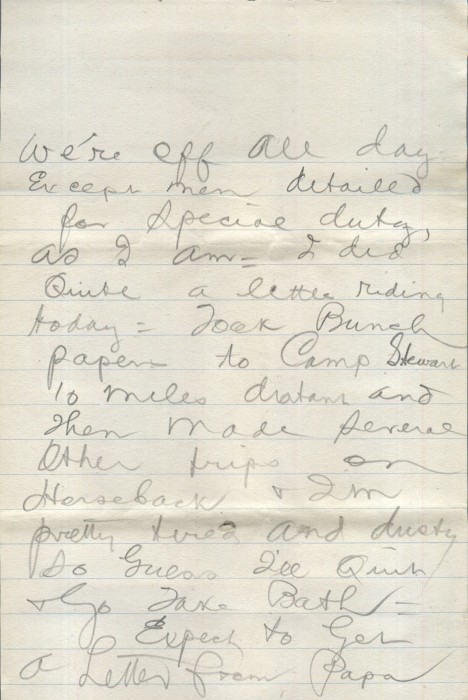 We're off all day
Except men detailed
for Special duty,
as I am = I did
Quite a little riding
today = Took Bunch
papers to Camp Stewart
10 miles distant and
then made several
Other trips on
Horseback & I'm
pretty tired and dusty
So Guess I'll Quit
& Go Take Bath =
Expect to Get
a Letter from Papa